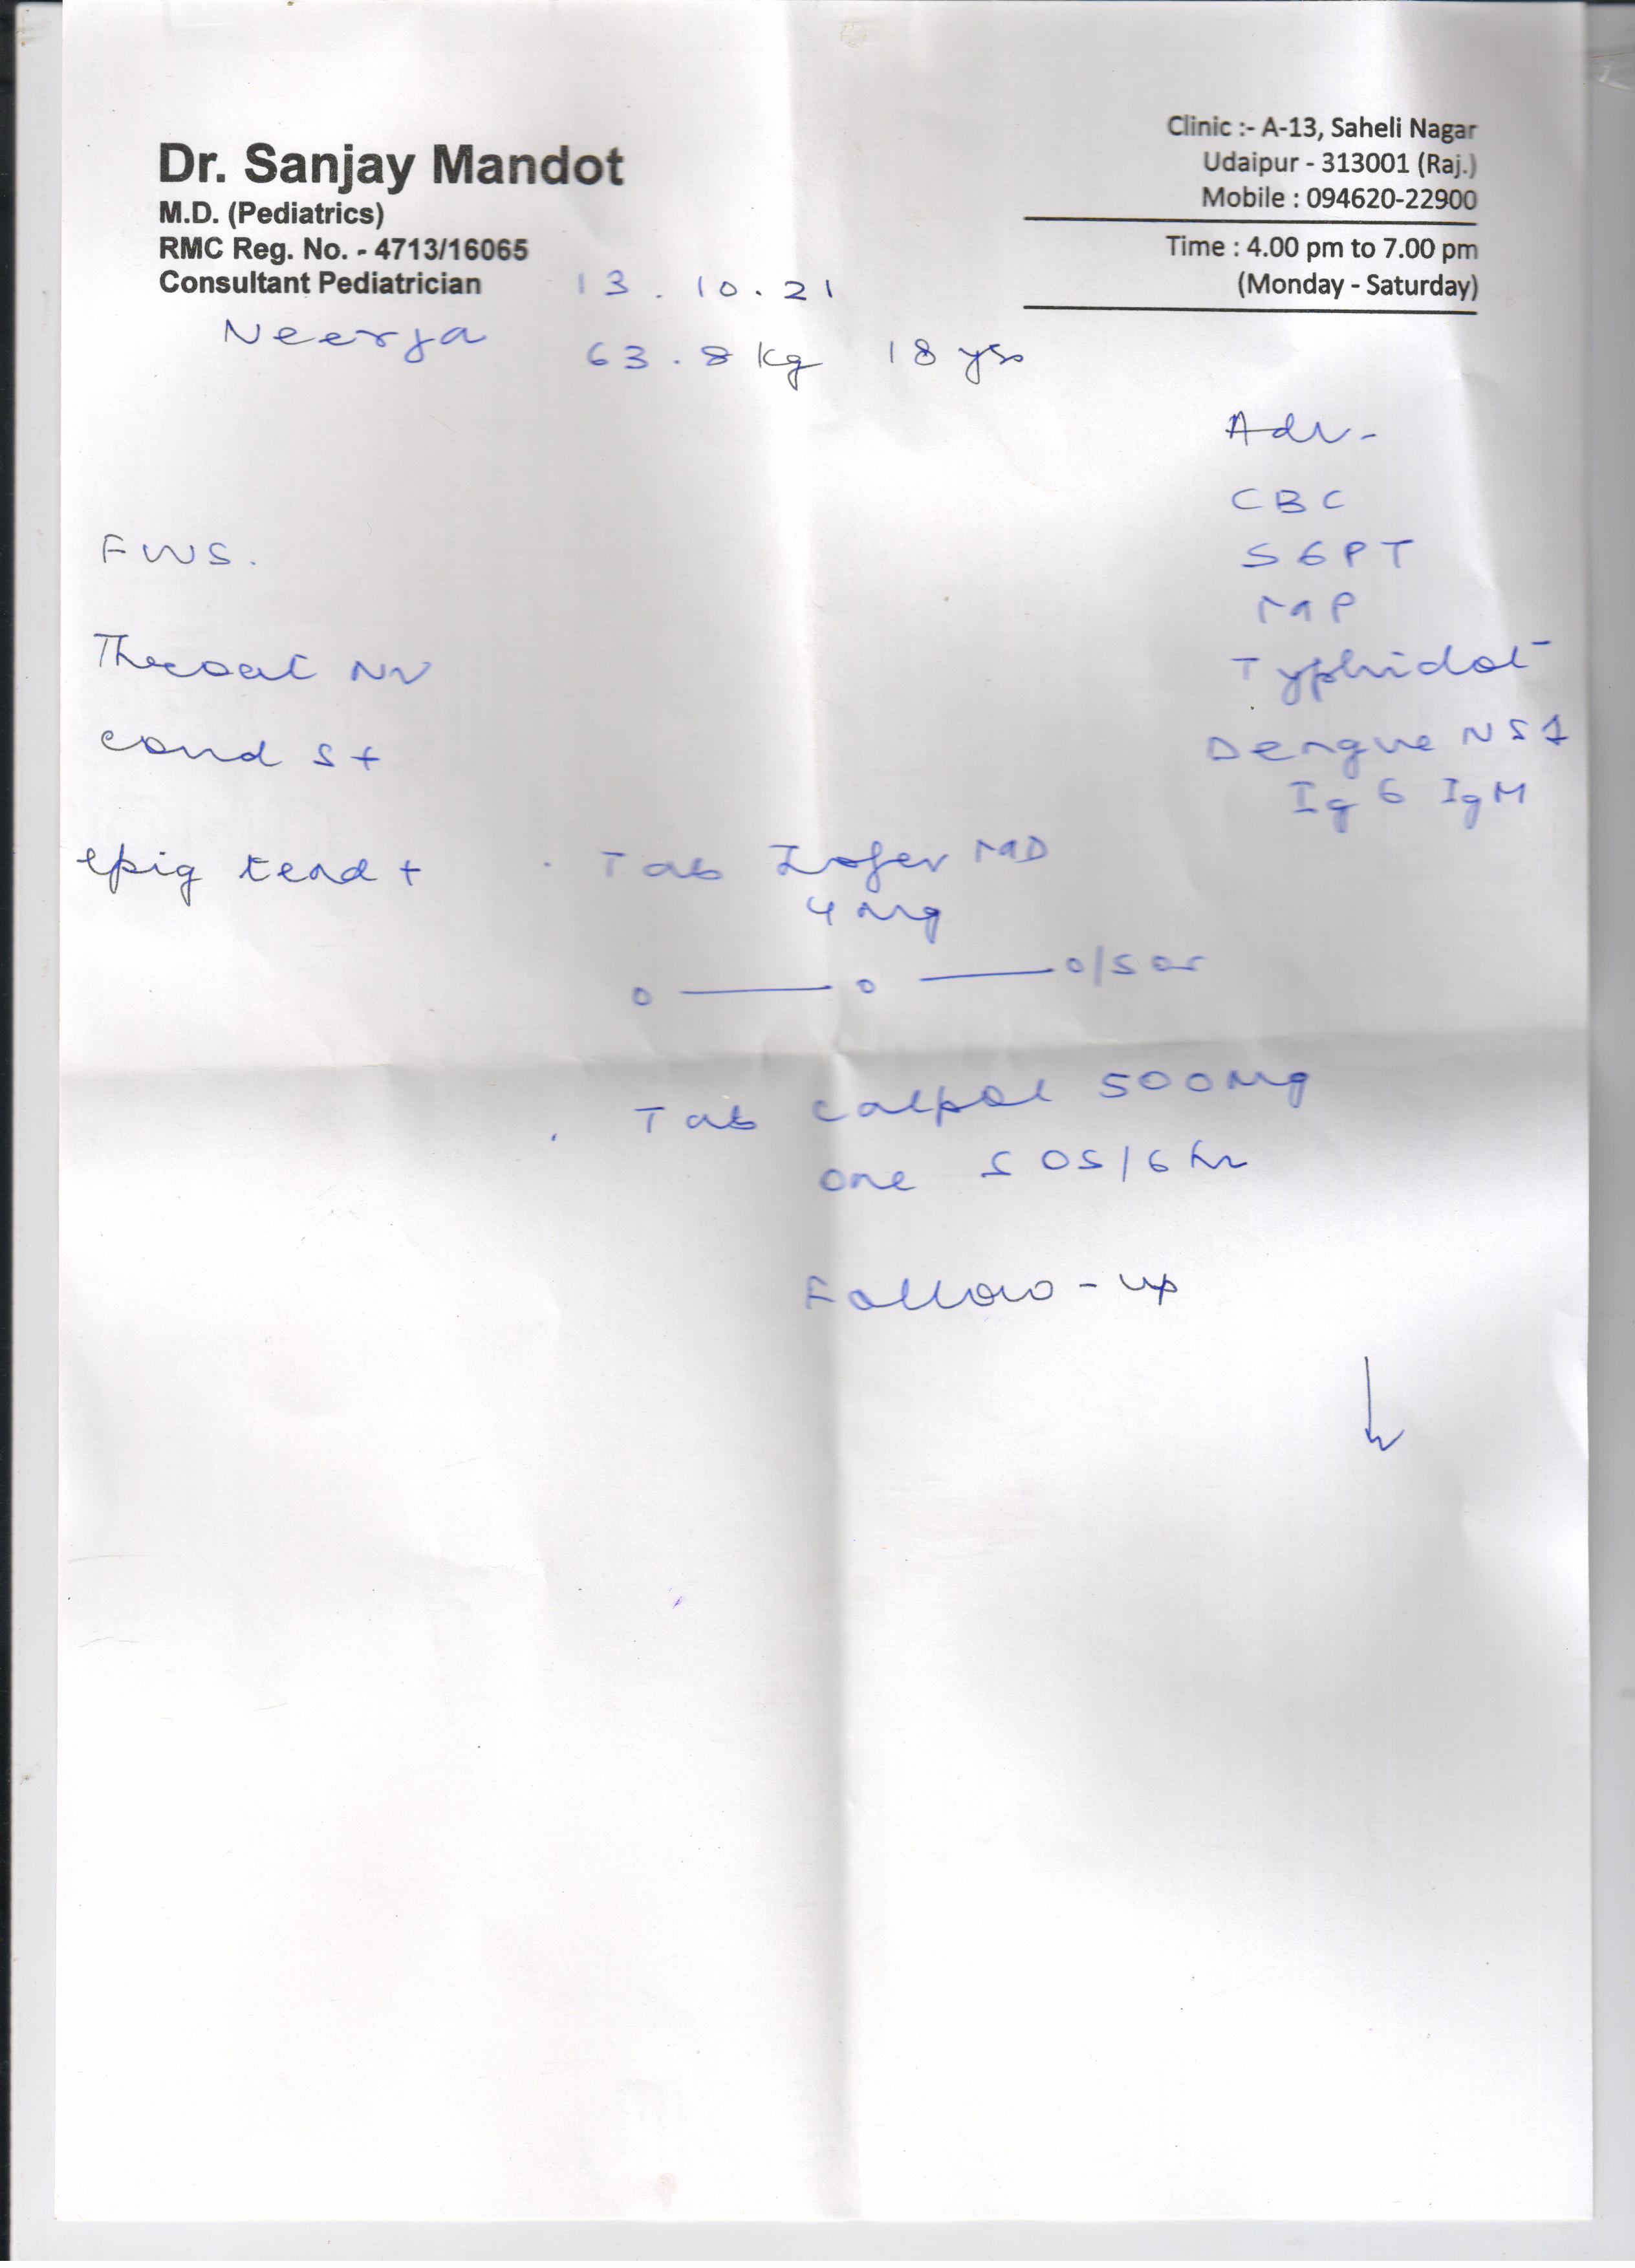 Dr. Sanjay Mandot
M.D. (Pediatrics)
RMC Reg. No. - 4713/16065
Consultant Pediatrician
Clinic :- A-13, Saheli Nagar
Udaipur - 313001 (Raj.)
Mobile : 094620-22900
Time : 4.00 pm to 7.00 pm
(Monday - Saturday)
13.10.21
Neerja 63.8 kg 18 yrs
Adv-
CBC
SGPT
MP
Typhidot
Dengue NS1
IgG IgM
FWS.
Throat
cond S+
epig tend +
Tab MD
4 mg
0 — 0 — 0/SOS
Tab Calpol 500mg
one SOS/6 hr
Follow-up